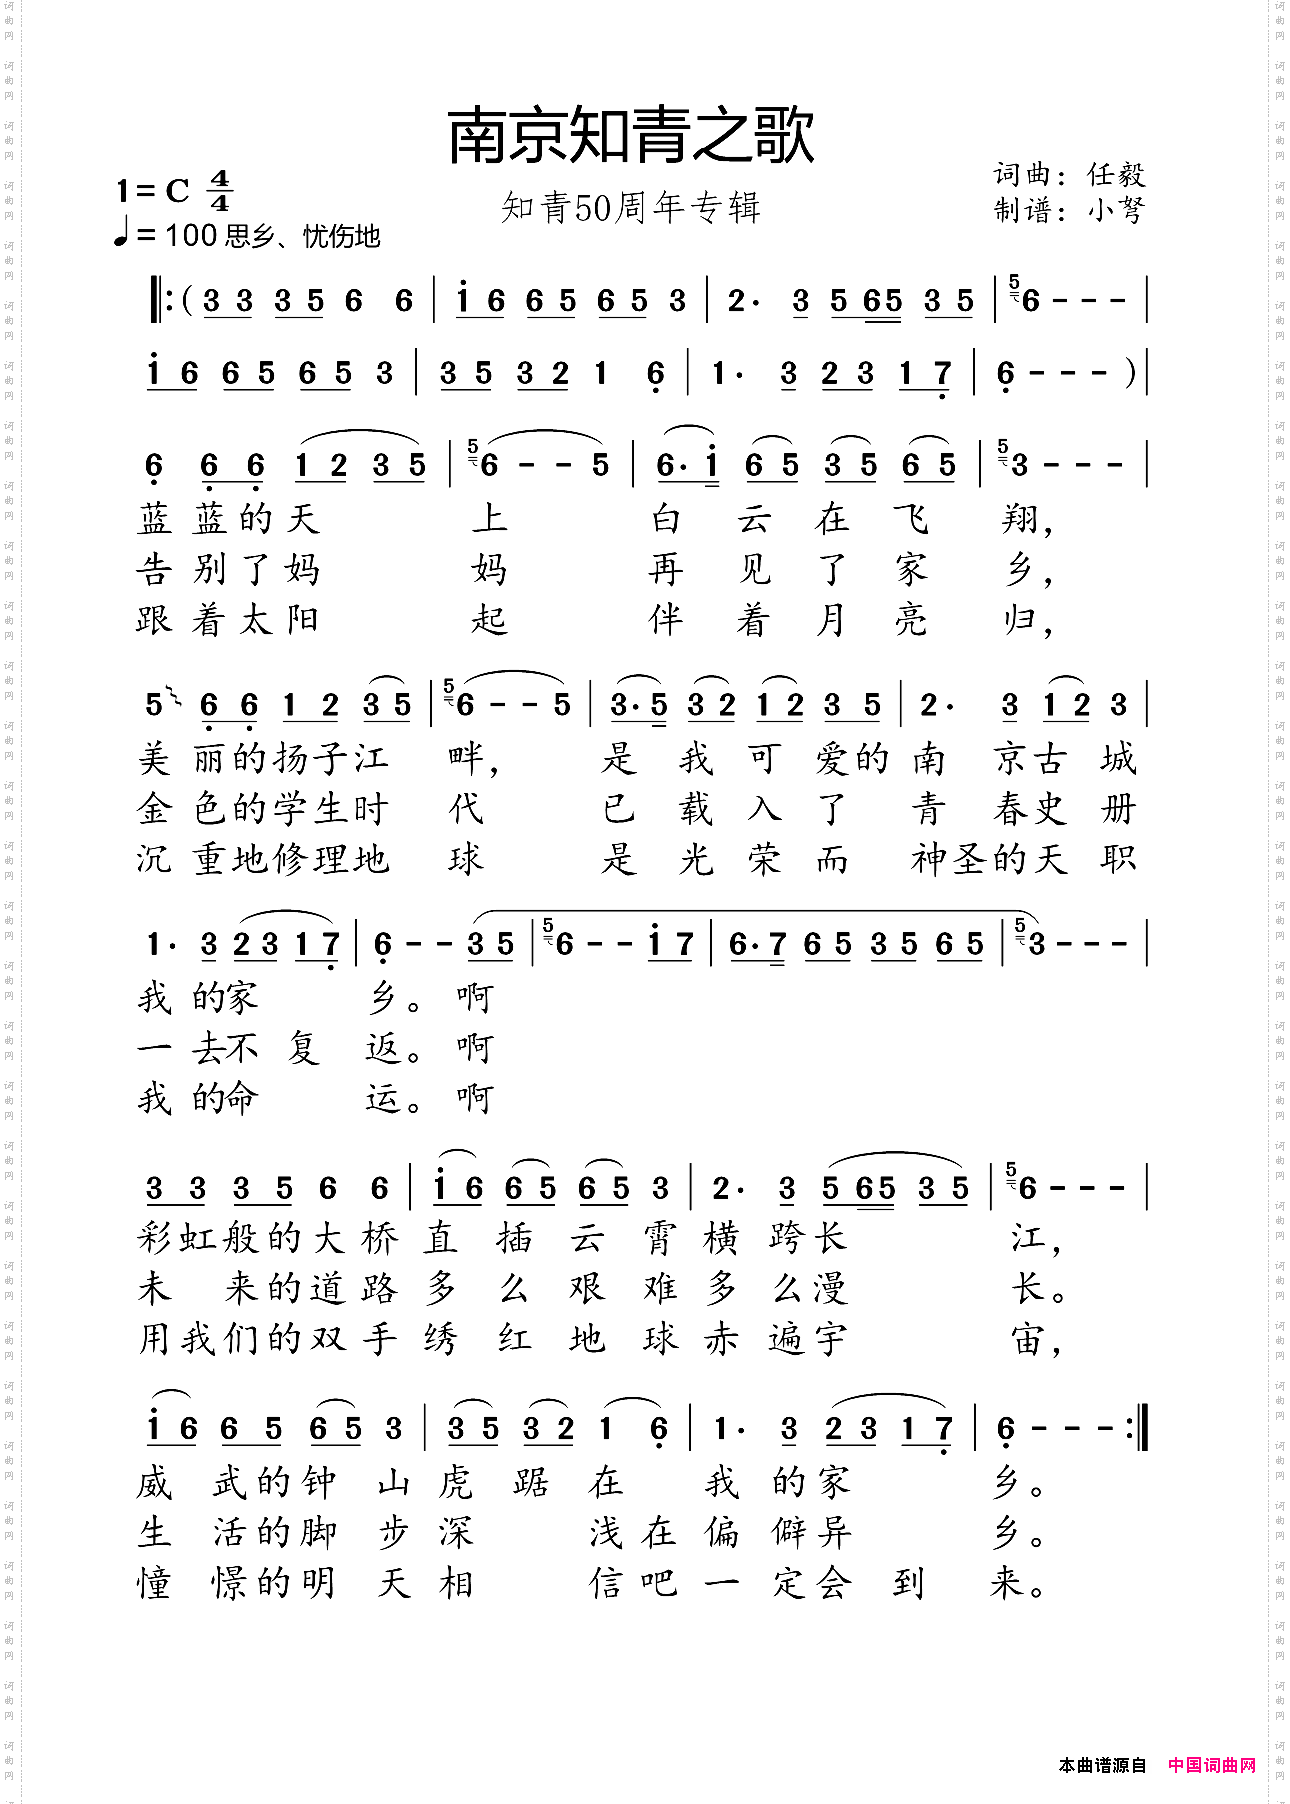 南京知青之歌
1=C 4/4
知青50周年专辑
词曲：任毅
制谱：小弩
♩=100 思乡、忧伤地
‖:(3 3 3 5 6 6 | i 6 6 5 6 5 3 | 2· 3 5 6 5 3 5 | 5 6 - - - |
i 6 6 5 6 5 3 | 3 5 3 2 1 6̣ | 1· 3 2 3 1 7̣ | 6̣ - - - )|
6̣ 6̣ 6̣ 1 2 3 5 | 5 6 - - 5 | 6· i 6 5 3 5 6 5 | 5 3 - - - |
蓝蓝的天 上 白云在飞翔，
告别了妈 妈 再见了家乡，
跟着太阳 起 伴着月亮归，
5 6̣ 6̣ 1 2 3 5 | 5 6 - - 5 | 3· 5 3 2 1 2 3 5 | 2· 3 1 2 3 |
美丽的扬子江畔， 是我可爱的南京古城
金色的学生时代 已载入了青春史册
沉重地修理地球 是光荣而神圣的天职
1· 3 2 3 1 7̣ | 6̣ - - 3 5 | 5 6 - - i 7 | 6· 7 6 5 3 5 6 5 | 5 3 - - - |
我的家 乡。啊
一去不复返。啊
我的命 运。啊
3 3 3 5 6 6 | i 6 6 5 6 5 3 | 2· 3 5 6 5 3 5 | 5 6 - - - |
彩虹般的大桥直插云霄横跨长 江，
未 来的道路多么艰难多么漫 长。
用我们的双手绣红地球赤遍宇 宙，
i 6 6 5 6 5 3 | 3 5 3 2 1 6̣ | 1· 3 2 3 1 7̣ | 6̣ - - - :‖
威武的钟山虎踞在 我的家 乡。
生活的脚步深 浅在偏僻异 乡。
憧憬的明天相 信吧一定会到来。
本曲谱源自 中国词曲网